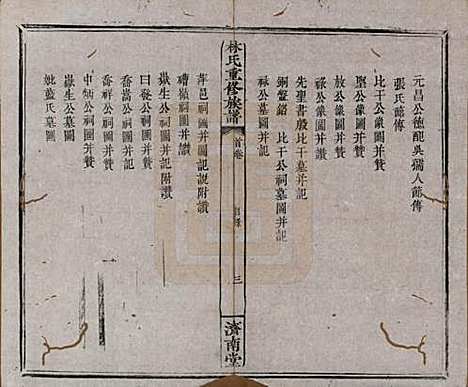 元昌公德配吳孺人節傳
張氏節傳
比干公象圖并贊
堅公象圖并贊
放公象圖并讚
祿公象圖并讚
先聖書殷比干墓圖并記
銅盤銘　比干公祠墓圖并記
祿公墓圖并記
林氏重修族譜
首卷
目錄
三
濟南堂
萍邑祠圖并圖記說附讚
禮嶺祠圖并讚
嶽生公祠圖并記附讚
曰發公祠圖并贊
喬嵩公祠圖并贊
喬祥公祠圖并贊
中炳公祠圖并贊
嶽生公墓圖
妣藍氏墓圖